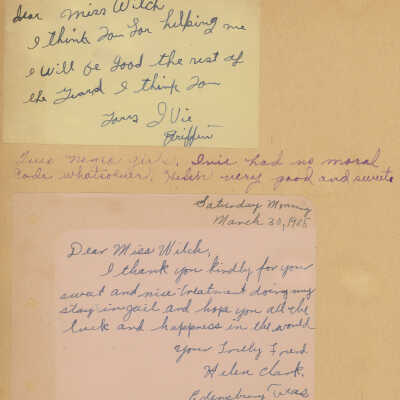 dear Miss Wilch
I think You for helping me
I will be good the rest of
the Yeard I think You
Yours Ivie
Griffin
Two negro girls. Ivie had no moral
Code whatsoever. Helen very good and sweet.
Saturday Morning
March 30, 1905
Dear Miss Wilch,
I thank you kindly for your
sweat and nice treatment doing my
stay in gail and hope you all the
luck and happiness in the world
Your Truly Friend
Helen Clark.
Edensburg Texas